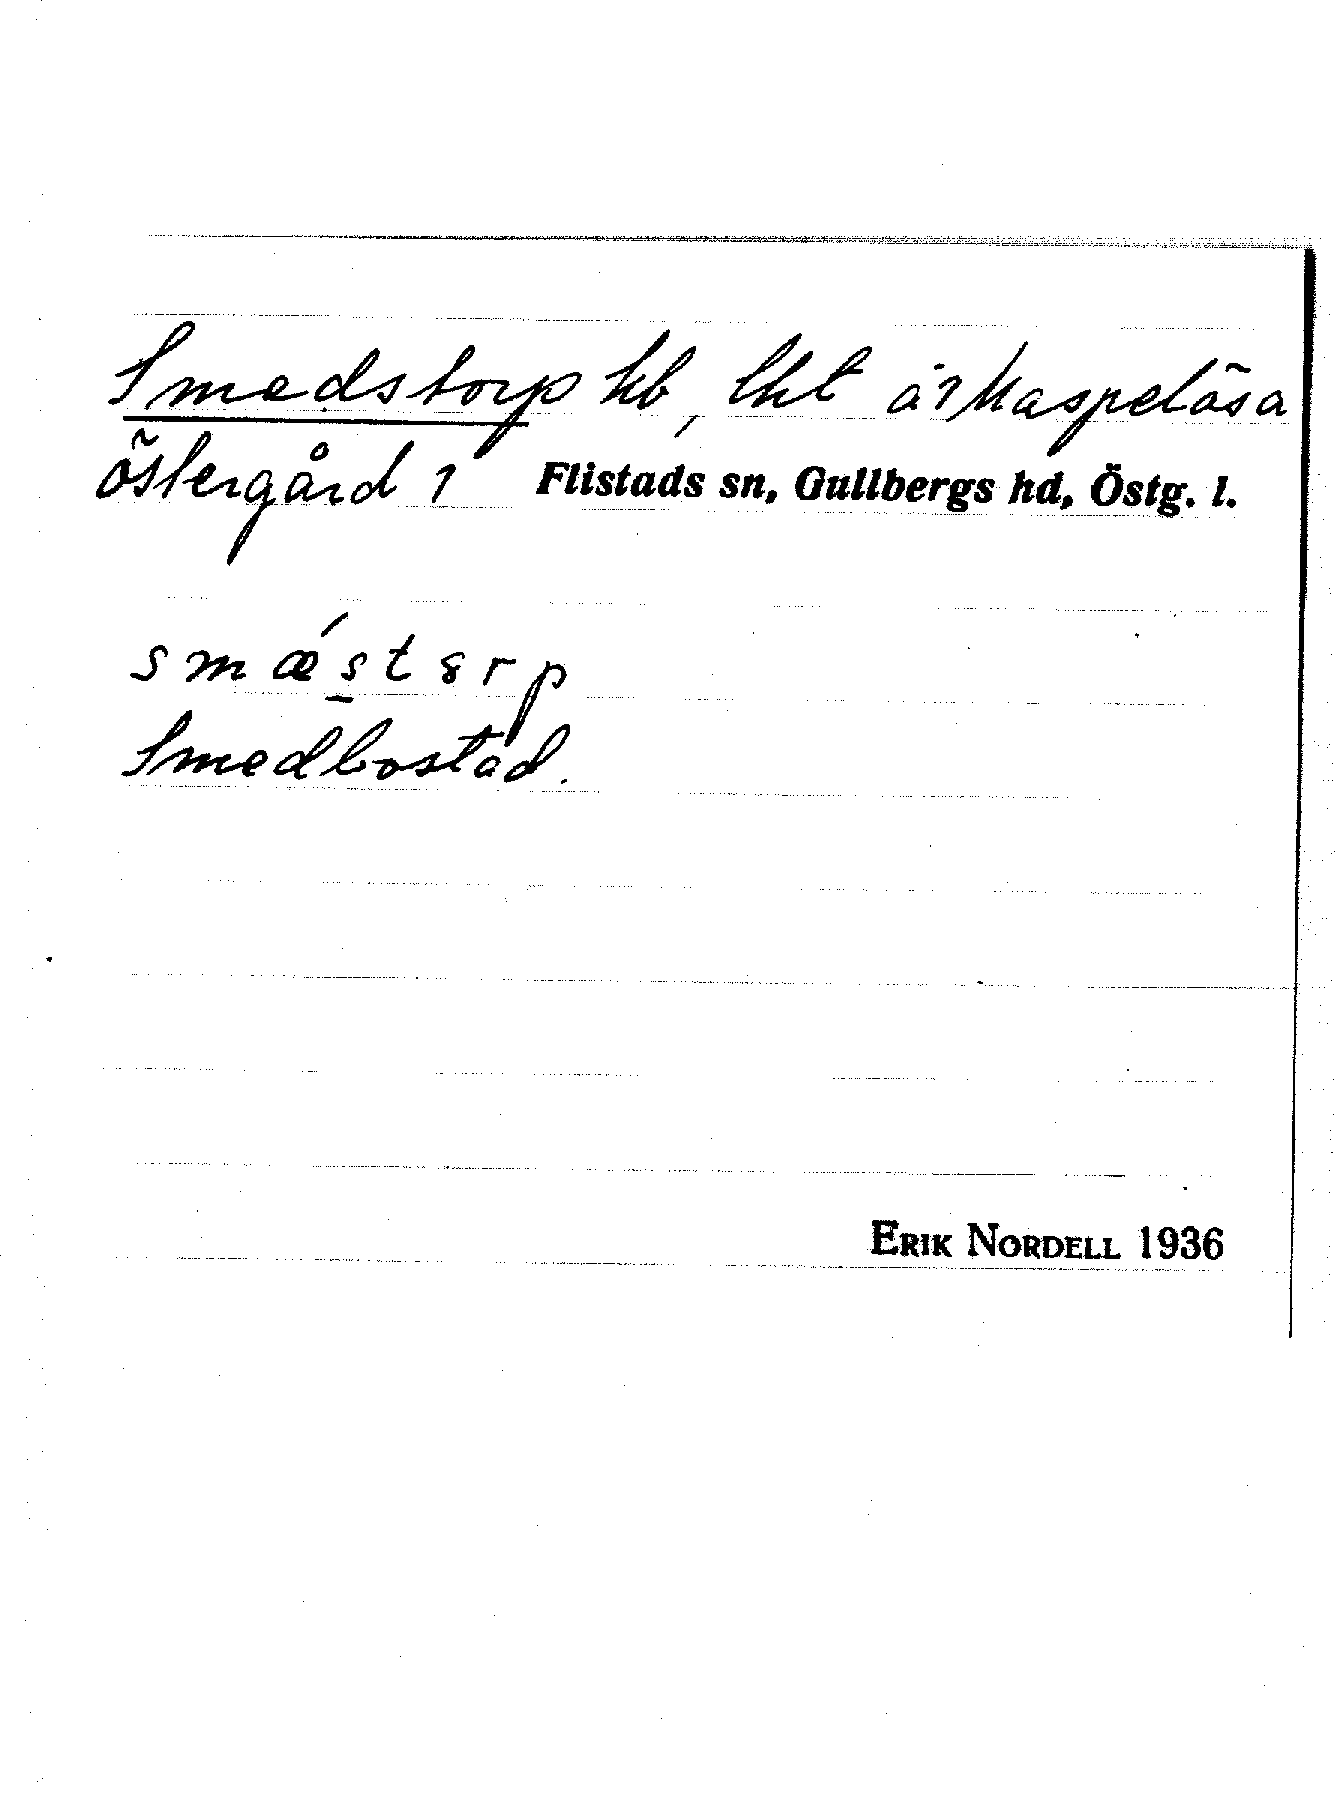 Smedstorp hb, lht å? Maspelösa
Östergård 1 Flistads sn, Gullbergs hd, Östg. l.
smǽs̲tɞrp
Smedbostad.
ERIK NORDELL 1936